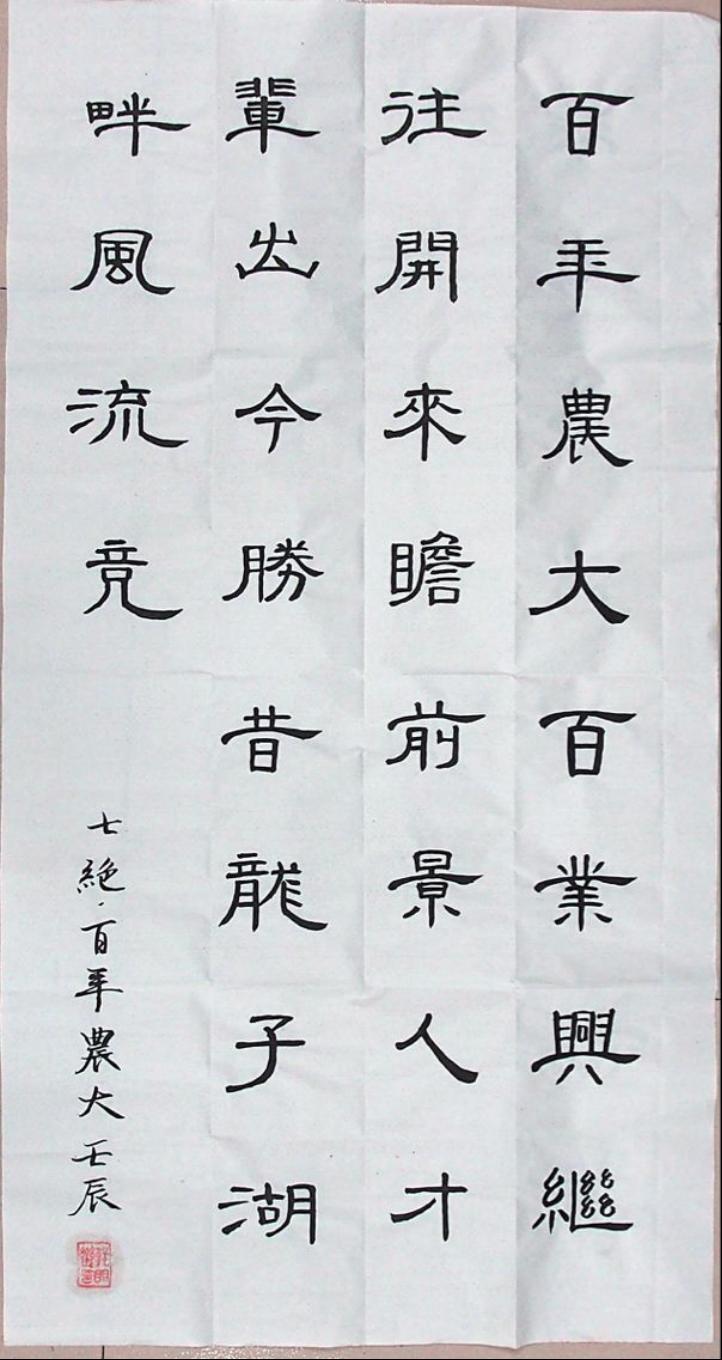 百年農大百業興繼
往開來瞻前景人才
輩出今勝昔龍子湖
畔風流竞
七絶·百年農大壬辰